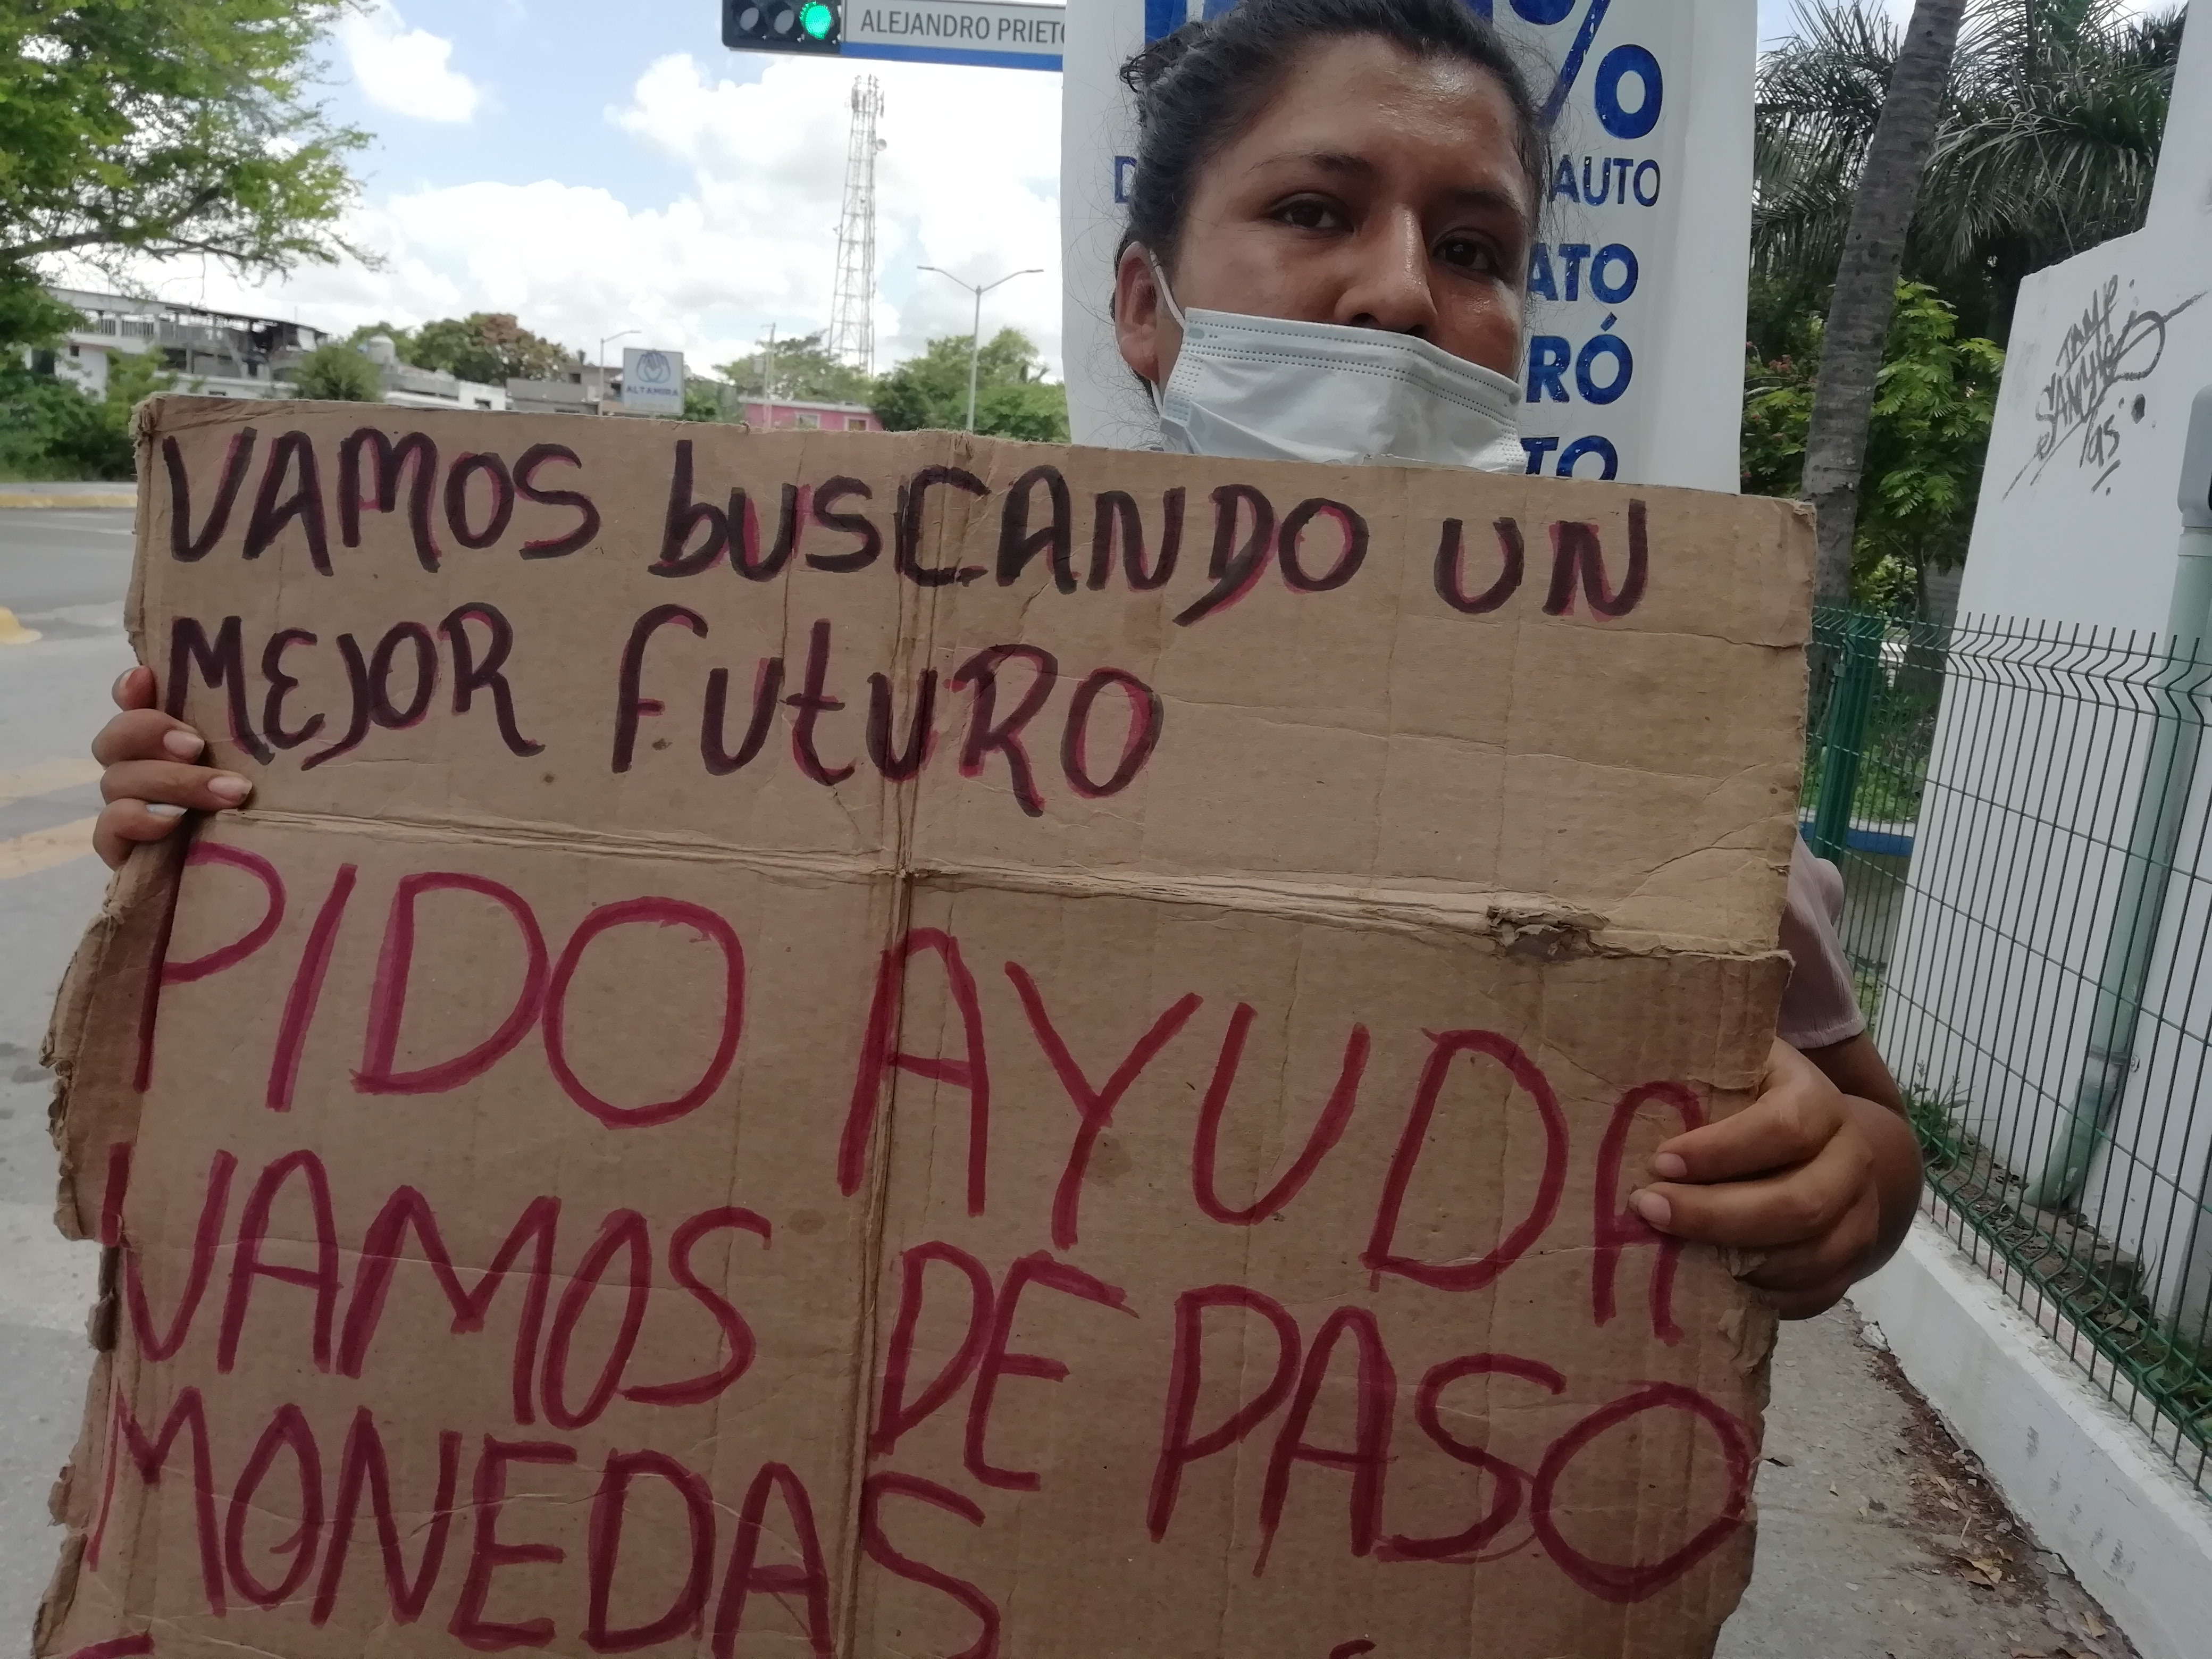 ALEJANDRO PRIETO
%
AUTO
ATO
RÓ
TO
ALTAMIRA
VAMOS bUSCANDO UN
MEJOR FUtURO
PIDO AYUDA
VAMOS DE PASO
MONEDAS